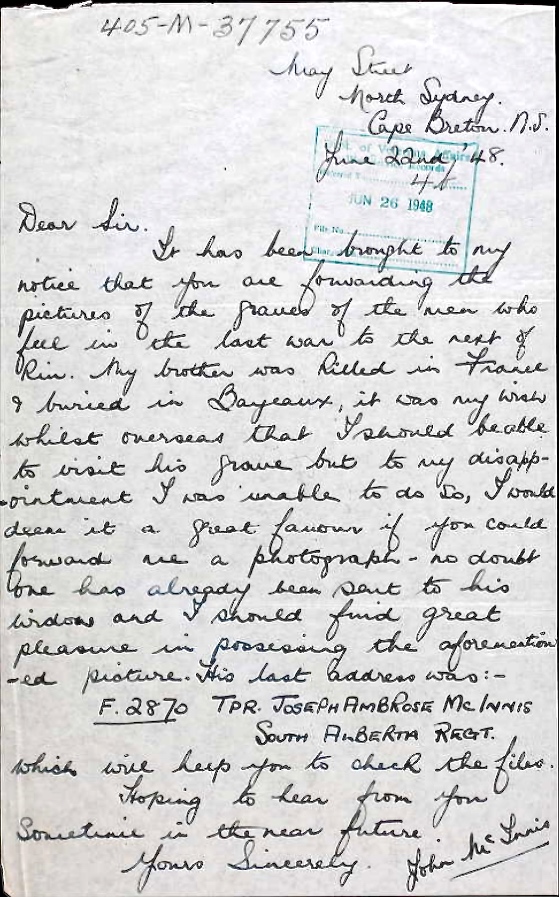 405-M-37755
May Street
North Sydney.
Cape Breton. N.S.
June 22nd, '48.
JUN 26 1948
File No.
Dear Sir.
It has been brought to my
notice that you are forwarding the
pictures of the graves of the men who
fell in the last war to the next of
Kin. My brother was killed in France
& buried in Bayeaux, it was my wish
whilst overseas that I should be able
to visit his grave but to my disapp-
-ointment I was unable to do so, I would
deem it a great favour if you could
forward me a photograph - no doubt
one has already been sent to his
widow and I should find great
pleasure in possessing the aforemention
-ed picture. His last address was:-
F. 2870 TPR. JOSEPH AMBROSE McINNIS
SOUTH ALBERTA REGT.
which will help you to check the files.
Hoping to hear from you
Sometime in the near future
Yours Sincerely.
John McInnis